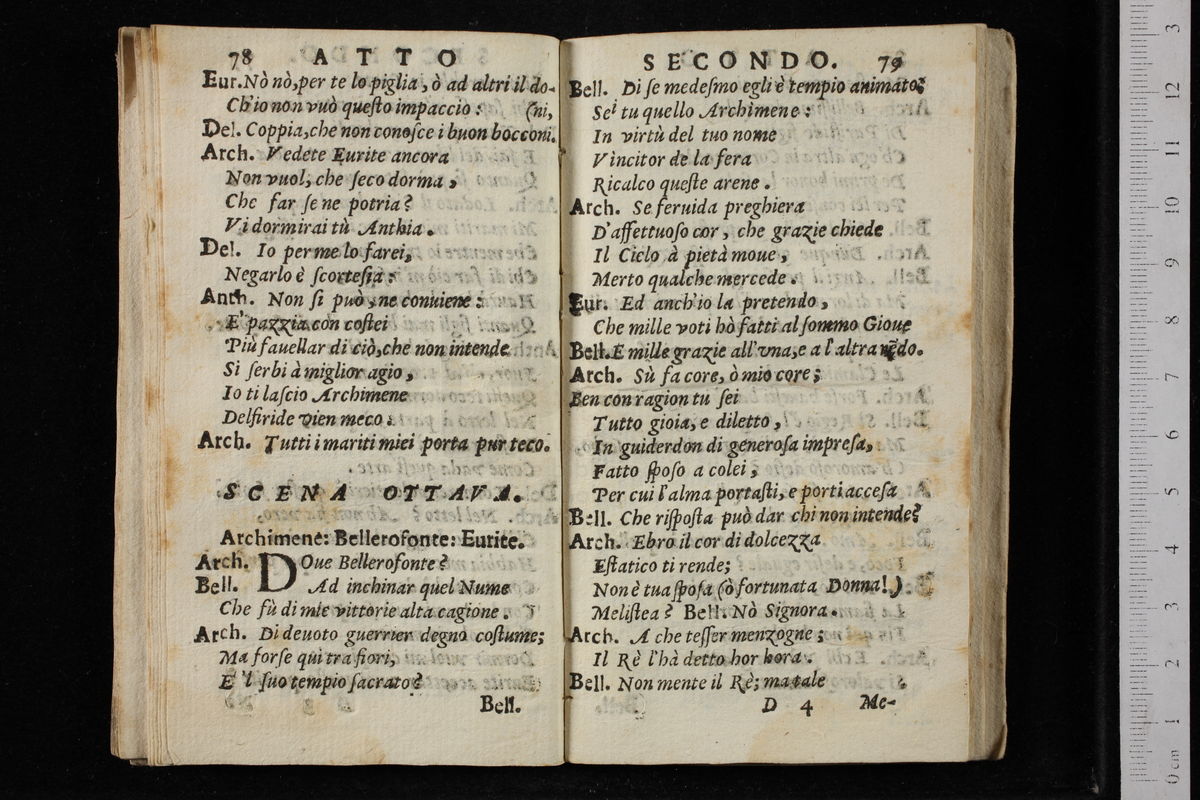 78 ATTO
Eur. Nò nò, per te lo piglia, ò ad altri il do-
Ch'io non vuò questo impaccio: (ni,
Del. Coppia, che non conosce i buon bocconi.
Arch. Vedete Eurite ancora
Non vuol, che seco dorma,
Che far se ne potria?
Vi dormirai tù Anthia.
Del. Io per me lo farei,
Negarlo è scortesia:
Anth. Non si può, ne conuiene:
E' pazzia con costei
Più fauellar di ciò, che non intende
Si serbi à miglior agio,
Io ti lascio Archimene
Delfiride vien meco:
Arch. Tutti i mariti miei porta pur teco.
SCENA OTTAVA.
Archimene: Bellerofonte: Eurite.
Arch. DOue Bellerofonte?
Bell. Ad inchinar quel Nume
Che fù di mie vittorie alta cagione.
Arch. Di deuoto guerrier degno costume;
Ma forse qui tra fiori,
E 'l suo tempio sacrato?
Bell.
SECONDO. 79
Bell. Di se medesmo egli è tempio animato?
Sei tu quello Archimene:
In virtù del tuo nome
Vincitor de la fera
Ricalco queste arene.
Arch. Se feruida preghiera
D'affettuoso cor, che grazie chiede
Il Cielo à pietà moue,
Merto qualche mercede.
Eur. Ed anch'io la pretendo,
Che mille voti hò fatti al sommo Gioue
Bell. E mille grazie all'vna, e a l'altra rẽdo.
Arch. Sù fa core, ò mio core;
Ben con ragion tu sei
Tutto gioia, e diletto,
In guiderdon di generosa impresa,
Fatto sposo a colei,
Per cui l'alma portasti, e porti accesa
Bell. Che risposta può dar chi non intende?
Arch. Ebro il cor di dolcezza
Estatico ti rende;
Non è tua sposa (ò fortunata Donna!)
Melistea? Bell. Nò Signora.
Arch. A che tesser menzogne;
Il Rè l'hà detto hor hora.
Bell. Non mente il Rè; ma tale
D 4 Me-
0 cm 1 2 3 4 5 6 7 8 9 10 11 12 13